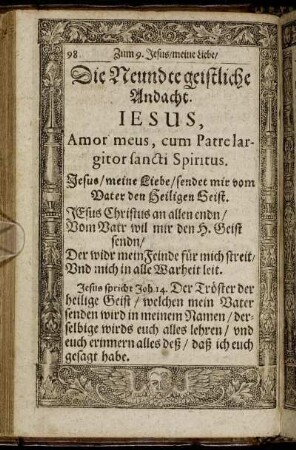 98   Zum 9. Jesus/meine Liebe/
Die Neundte geistliche
Andacht.
IESUS,
Amor meus, cum Patre lar-
gitor sancti Spiritus.
Jesus/meine Liebe/sendet mir vom
Vater den Heiligen Geist.
JEsus Christus an allen endn/
Vom Vatr wil mir den H. Geist
sendn/
Der widr mein Feinde für mich streit/
Vnd mich in alle Warheit leit.
Jesus spricht Joh. 14. Der Tröster der
heilige Geist/welchen mein Vater
senden wird in meinem Namen/der-
selbige wirds euch alles lehren/vnd
euch erinnern alles deß/daß ich euch
gesagt habe.